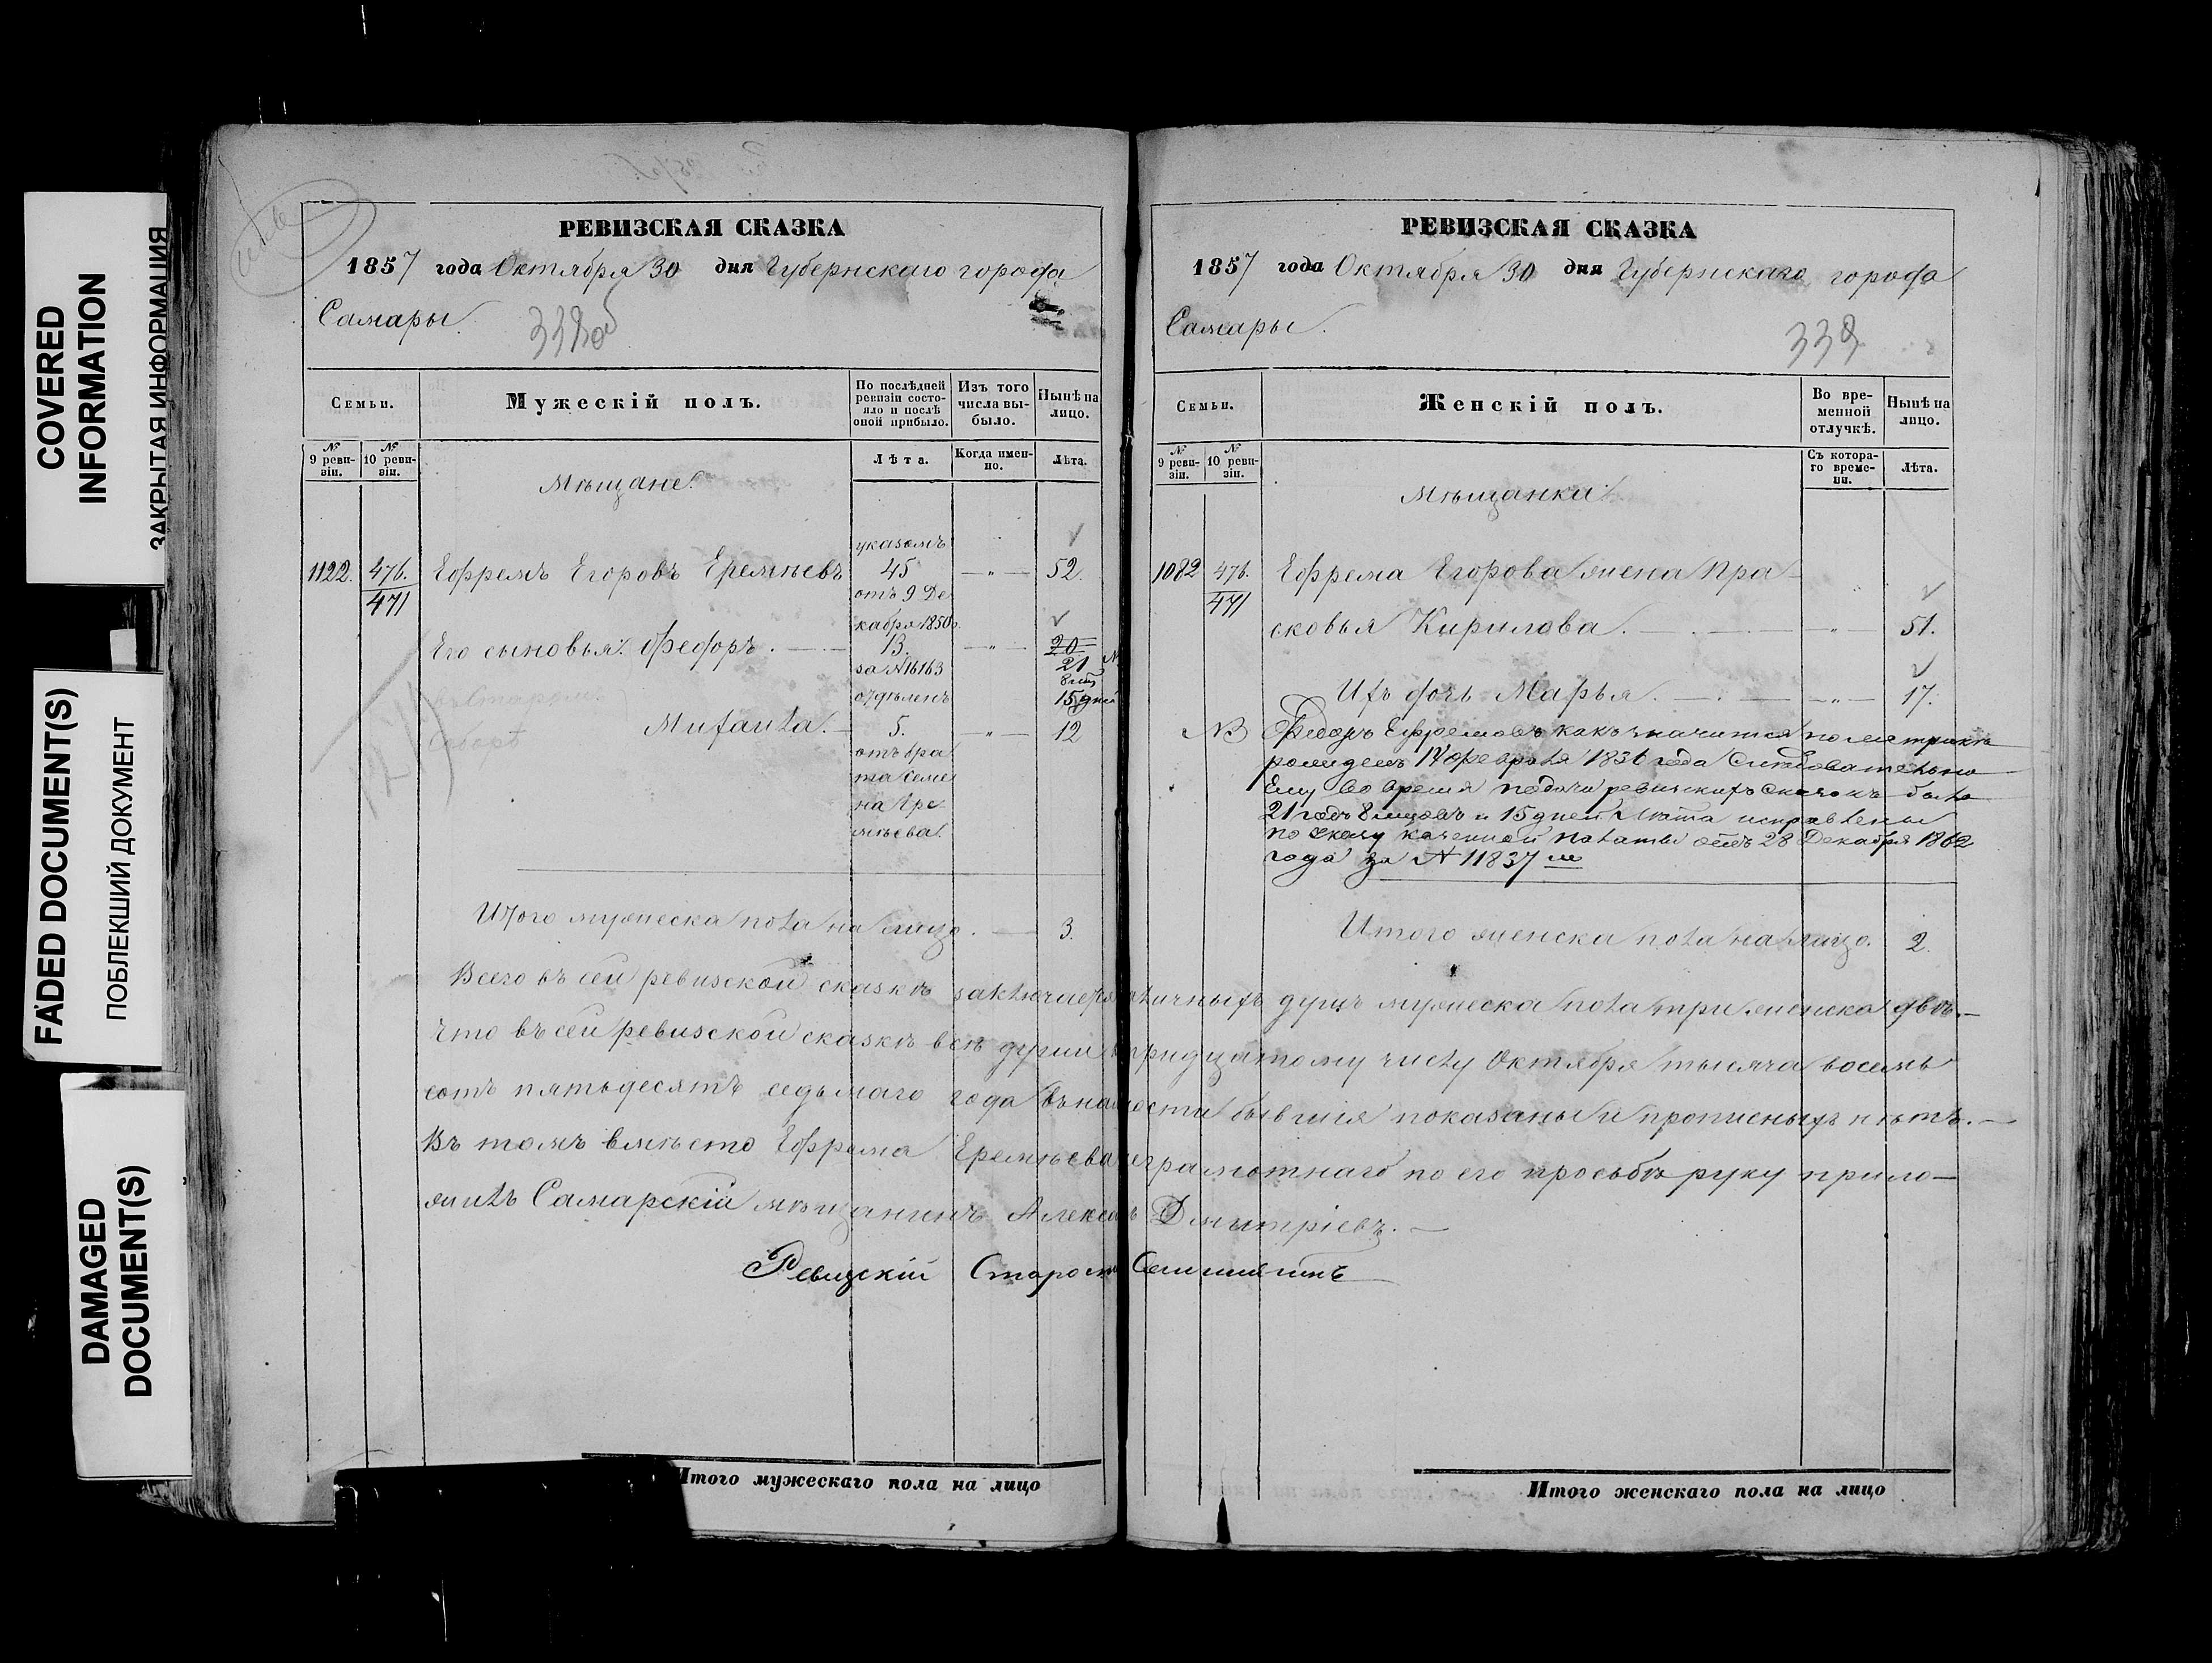 COVERED
INFORMATION
ЗАКРЫТАЯ ИНФОРМАЦИЯ
FADED DOCUMENT(S)
ПОБЛЕКШИЙ ДОКУМЕНТ
DAMAGED
DOCUMENT(S)
РЕВИЗСКАЯ СКАЗКА
1857 года Октября 30 дня Губернскаго города
Самары.
338об
Семьи.
Мужескій полъ.
По послѣдней ревизіи состояло и послѣ оной прибыло.
Изъ того числа выбыло.
Нынѣ на лицо.
№ 9 ревизіи.
№ 10 ревизіи.
Лѣта.
Когда именно.
Лѣта.
Мѣщане.
указомъ
1122. 476. Ефремъ Егоровъ Еремѣевъ 45 — " — 52.
471
отъ 9 Де
кабря 1850 г.
Его сыновья: Федоръ. 13. — " — 20
за № 16163 21
8 мц
отдѣленъ 15 дней
Михаила. 5. — " — 12
отъ бра
та Семе
на Ере
мѣева.
Итого мужеска пола на лицо. — 3.
РЕВИЗСКАЯ СКАЗКА
1857 года Октября 30 дня Губернскаго города
Самары.
339
Семьи.
Женскій полъ.
Во временной отлучкѣ.
Нынѣ на лицо.
№ 9 ревизіи.
№ 10 ревизіи.
Съ котораго времени.
Лѣта.
Мѣщанки:
1082 476. Ефрема Егорова жена Пра-
471
сковья Кирилова. — " — 51.
Ихъ дочь Марья. — " — 17.
NB Федоръ Ефремовъ какъ значится по метрикѣ
рожденъ 14 февраля 1836 года Слѣдовательно
Ему во время подачи ревизскихъ сказокъ было
21 годъ 8 мцовъ и 15 дней Лѣта исправлены
по указу казенной палаты отъ 28 Декабря 1862
года за № 11837 м
Итого женска пола на лицо. 2.
Всего въ сей ревизской сказкѣ заключается наличныхъ душъ мужеска пола три женска двѣ.—
Что въ сей ревизской сказкѣ всѣ души къ тридцатому числу Октября тысяча восемь
сотъ пятьдесятъ седьмаго года въ наличности бывшія показаны и прописныхъ нѣтъ.—
Въ томъ вмѣсто Ефрема Еремѣева неграмотнаго по его просьбѣ руку прило-
жилъ Самарскій мѣщанинъ Алексѣй Дмитріевъ.—
Ревизскій Староста
Итого мужескаго пола на лицо
Итого женскаго пола на лицо